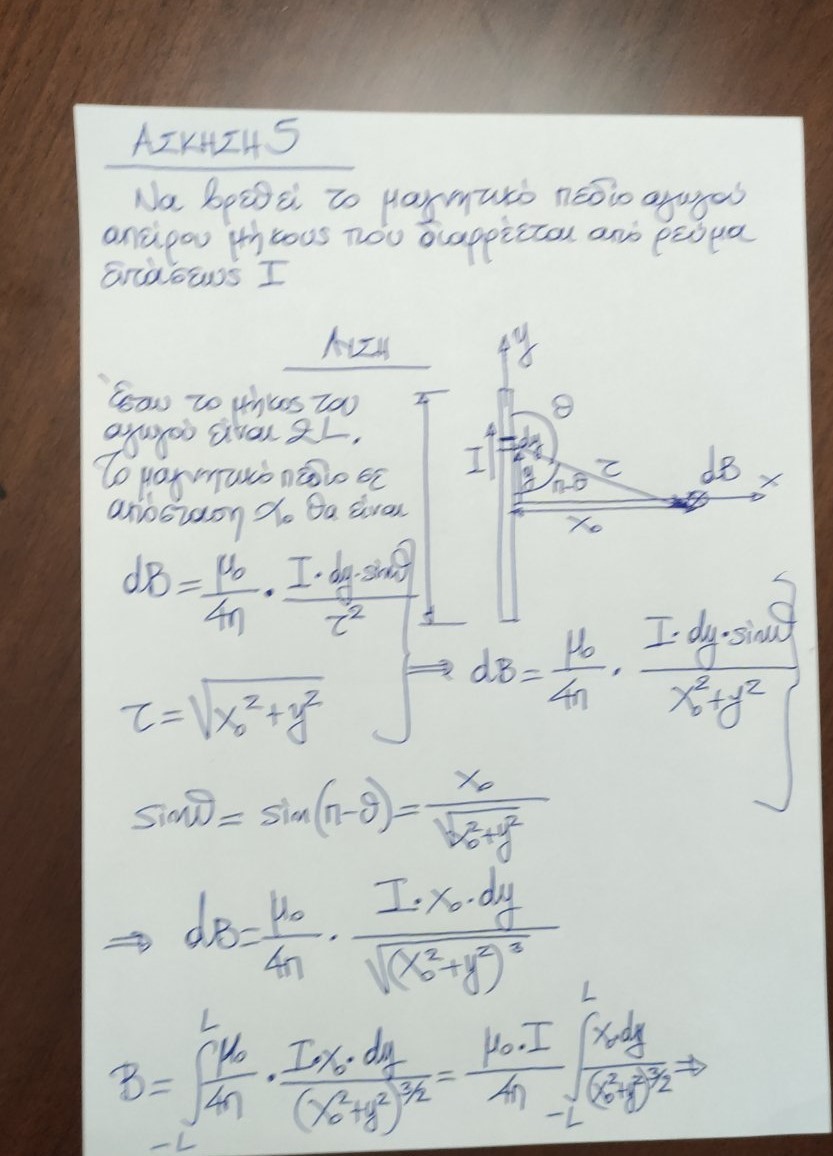 ΑΣΚΗΣΗ 5
Να βρεθεί το μαγνητικό πεδίο αγωγού
απείρου μήκους που διαρρέεται από ρεύμα
εντάσεως I
ΛΥΣΗ
Έστω το μήκος του
αγωγού είναι 2L.
Το μαγνητικό πεδίο σε
απόσταση x₀ θα είναι
y
θ
I
dy
y
π-θ
r
dB
x
x₀
dB = μ₀/4π · I·dy·sinθ/r²
r = √(x₀²+y²)
⇒ dB = μ₀/4π · I·dy·sinθ/(x₀²+y²)
sinθ = sin(π-θ) = x₀/√(x₀²+y²)
⇒ dB = μ₀/4π · I·x₀·dy/√(x₀²+y²)³
B = ∫_{-L}^{L} μ₀/4π · I·x₀·dy/(x₀²+y²)^{3/2} = μ₀·I/4π ∫_{-L}^{L} x₀dy/(x₀²+y²)^{3/2} ⇒